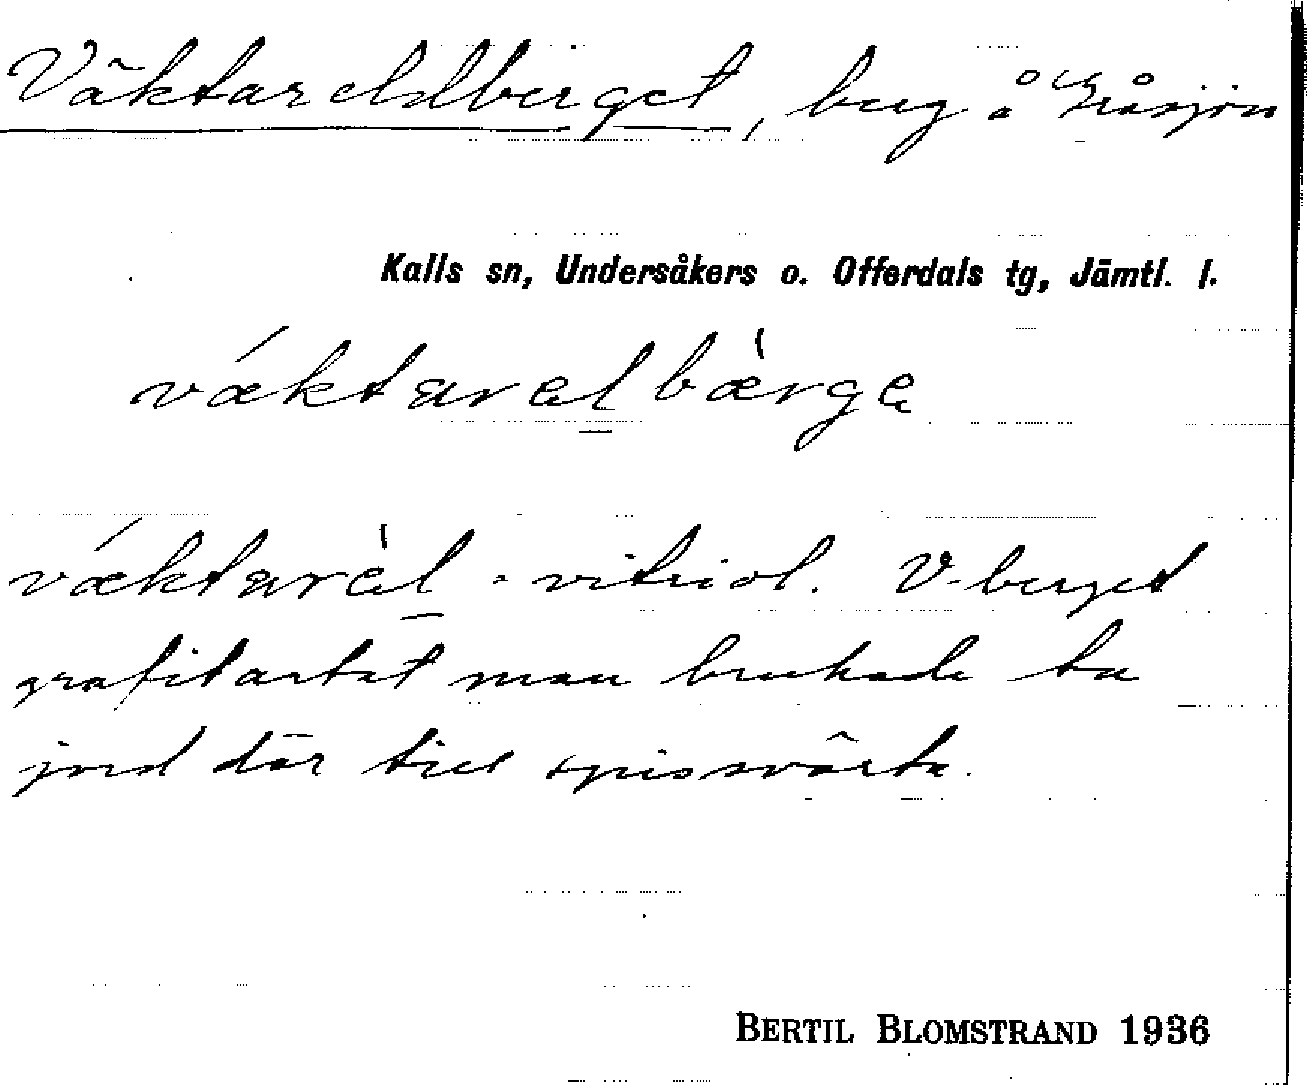 Väktareldberget, berg å Gråsjön
Kalls sn, Undersåkers o. Offerdals tg, Jämtl. l.
væktarelbærge
væktarel = vitriol. V-berget
grafitartat man brukade ta
jord där till spissvärta.
BERTIL BLOMSTRAND 1936